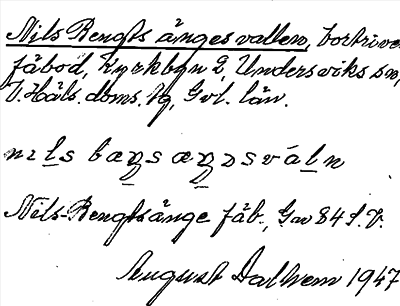 Nils Bengts änges vallen, bortriven
fäbod, Kyrkbyn 2, Undersviks sn,
V. Häls. doms. tg, Gvl. län.
nıls bæŋs æŋɔsválṇ
Nils-Bengtsänge fäb., Gm 84 S.V.
August Dalhem 1947